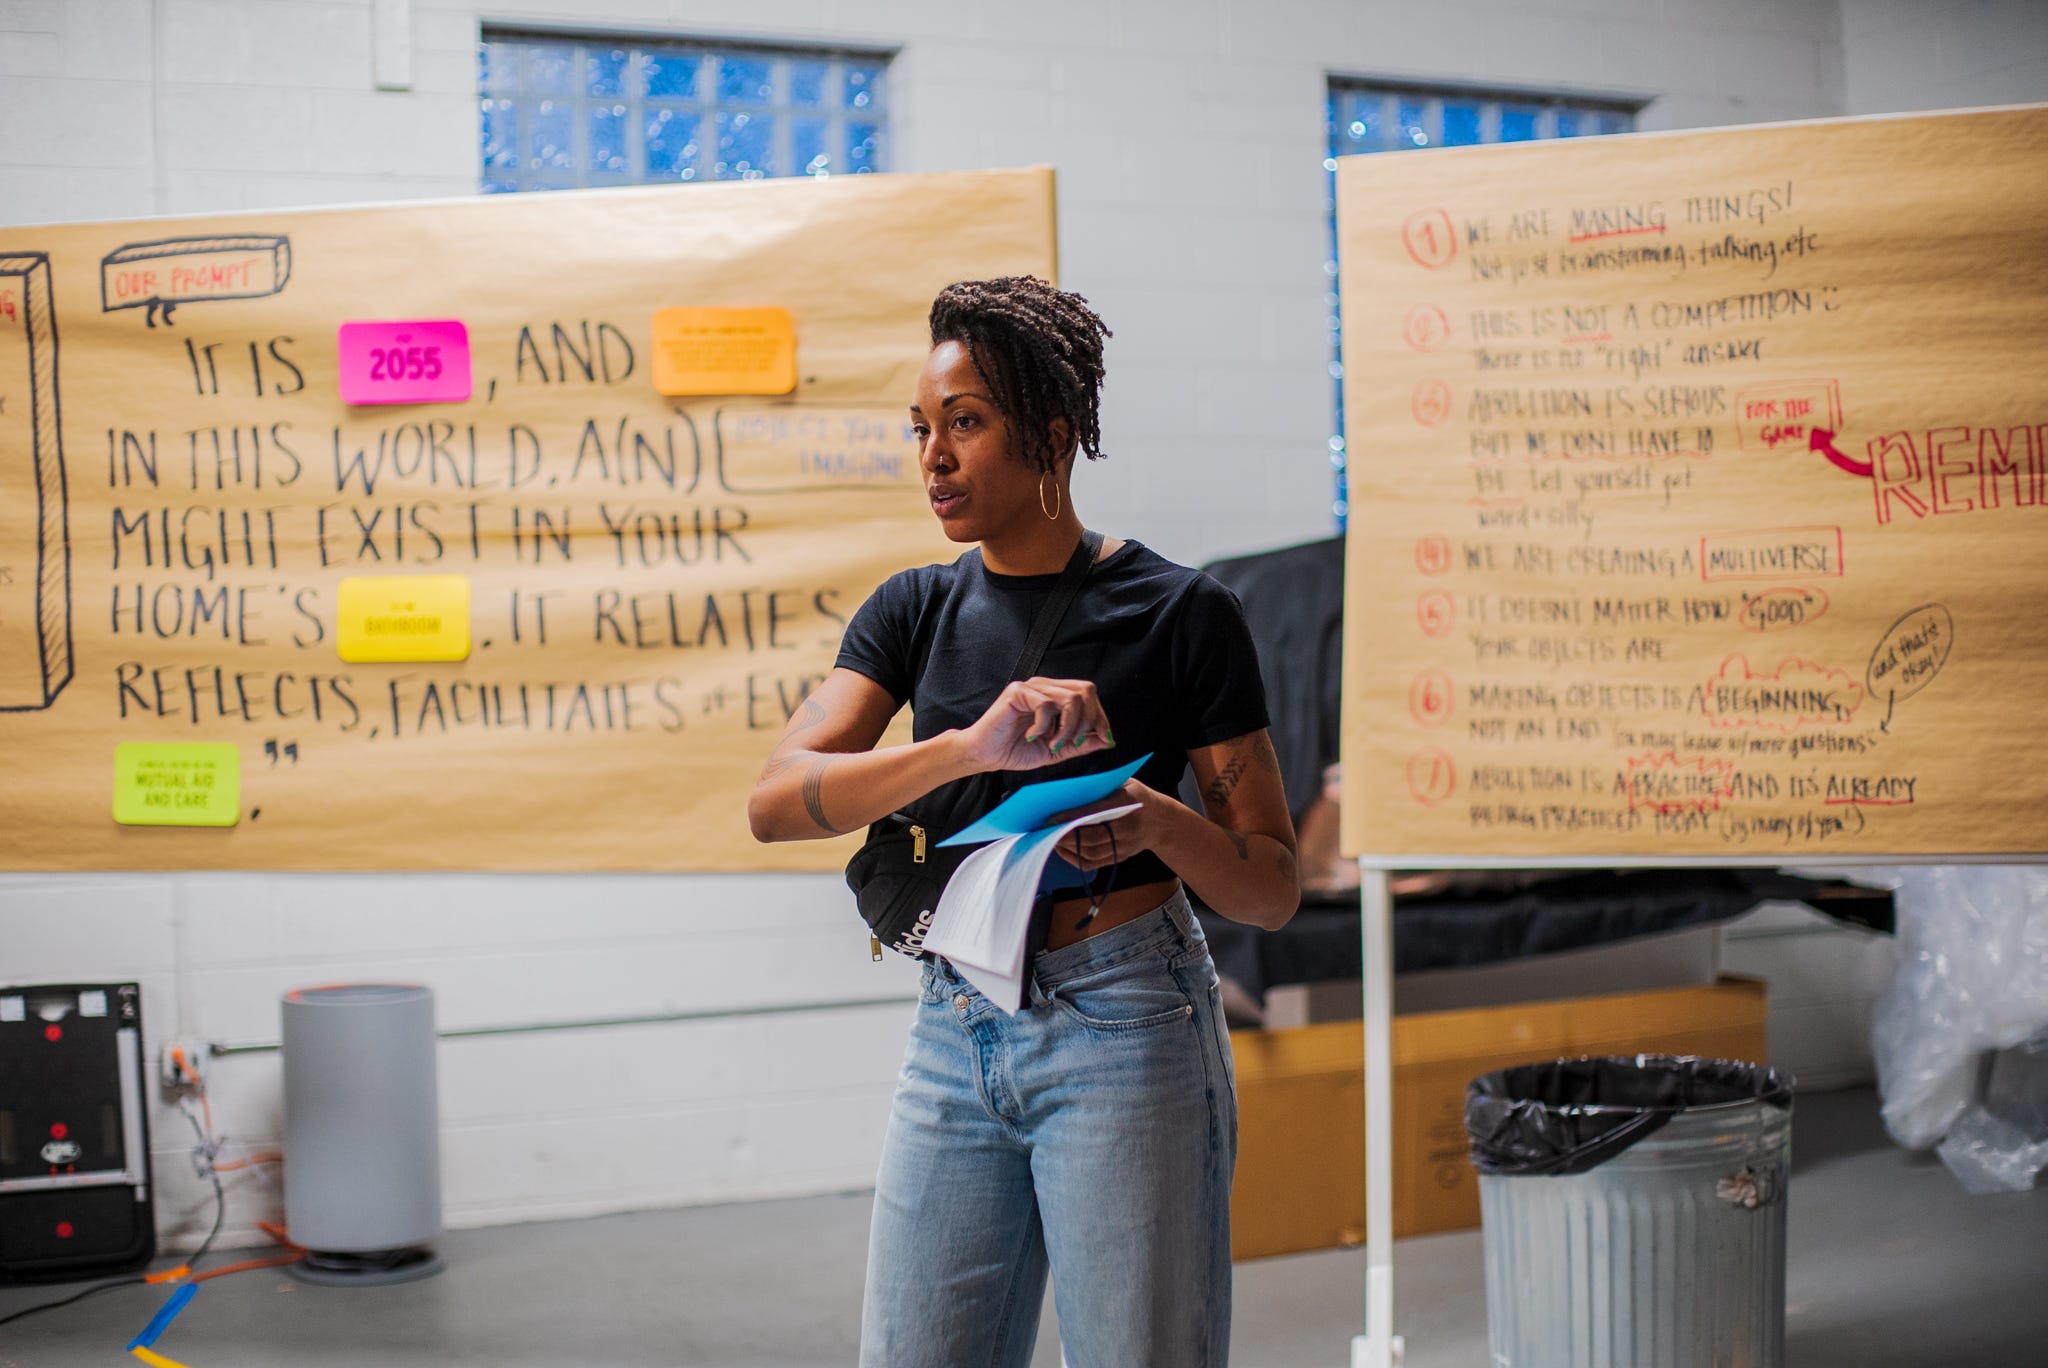 OUR PROMPT
"IT IS 2055, AND
IN THIS WORLD, A(N) OBJECT YOU
IMAGINE
MIGHT EXIST IN YOUR
HOME'S BATHROOM. IT RELATES
REFLECTS, FACILITATES OR EV
MUTUAL AID
AND CARE",
adidas
1 WE ARE MAKING THINGS!
Not just brainstorming, talking, etc
2 THIS IS NOT A COMPETITION :)
There is no "right" answer
3 ABOLITION IS SERIOUS
BUT WE DON'T HAVE TO
BE let yourself get
weird + silly
FOR THE
GAME
REM
4 WE ARE CREATING A MULTIVERSE
5 IT DOESN'T MATTER HOW "GOOD"
YOUR OBJECTS ARE
6 MAKING OBJECTS IS A BEGINNING,
NOT AN END (you may leave w/more questions
and that's
okay!
7 ABOLITION IS A PRACTICE AND IT'S ALREADY
BEING PRACTICED TODAY (by many of you!)